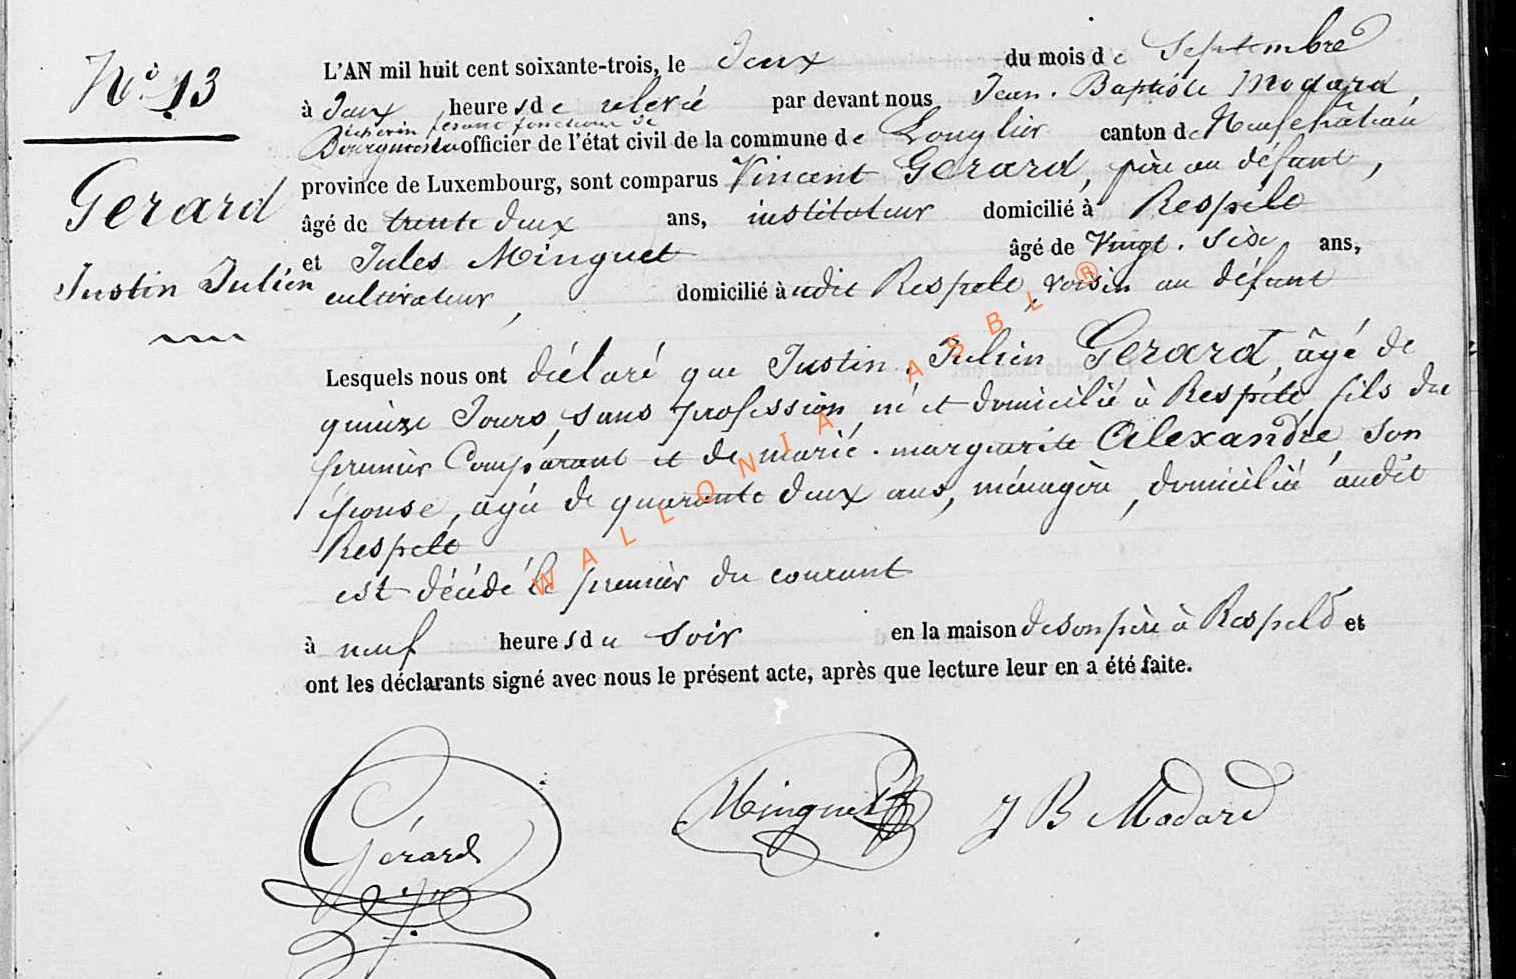 N° 13
Gerard
Justin Julien
L'AN mil huit cent soixante-trois, le deux du mois de Septembre
à deux heures de relevé par devant nous Jean-Baptiste Modard,
échevin fesant fonctions de
Bourgmestre officier de l'état civil de la commune de Longlier canton de Neufchâteau
province de Luxembourg, sont comparus Vincent Gerard, père au défunt,
âgé de trente deux ans, instituteur domicilié à Respelt
et Jules Minguet âgé de Vingt-Six ans,
cultivateur, domicilié à udit Respelt, voisin au défunt
Lesquels nous ont déclaré que Justin-Julien Gerard, âgé de
quinze Jours, sans profession, né et domicilié à Respelt, fils du
premier Comparant et de marie-marguerite Alexandre, son
épouse, agée de quarante deux ans, ménagère, domiciliée audit
Respelt
est décédé le premier du courant
à neuf heures du soir en la maison de son père à Respelt et
ont les déclarants signé avec nous le présent acte, après que lecture leur en a été faite.
Gérard Minguet J B Modard
WALLONIA ASBL ®